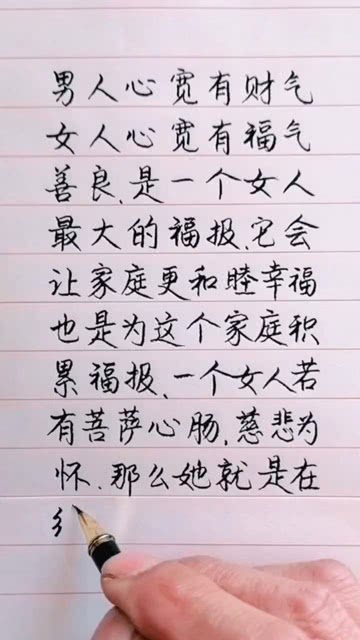 男人心宽有财气
女人心宽有福气
善良、是一个女人
最大的福报、它会
让家庭更和睦幸福
也是为这个家庭积
累福报、一个女人若
有菩萨心肠、慈悲为
怀、那么她就是在